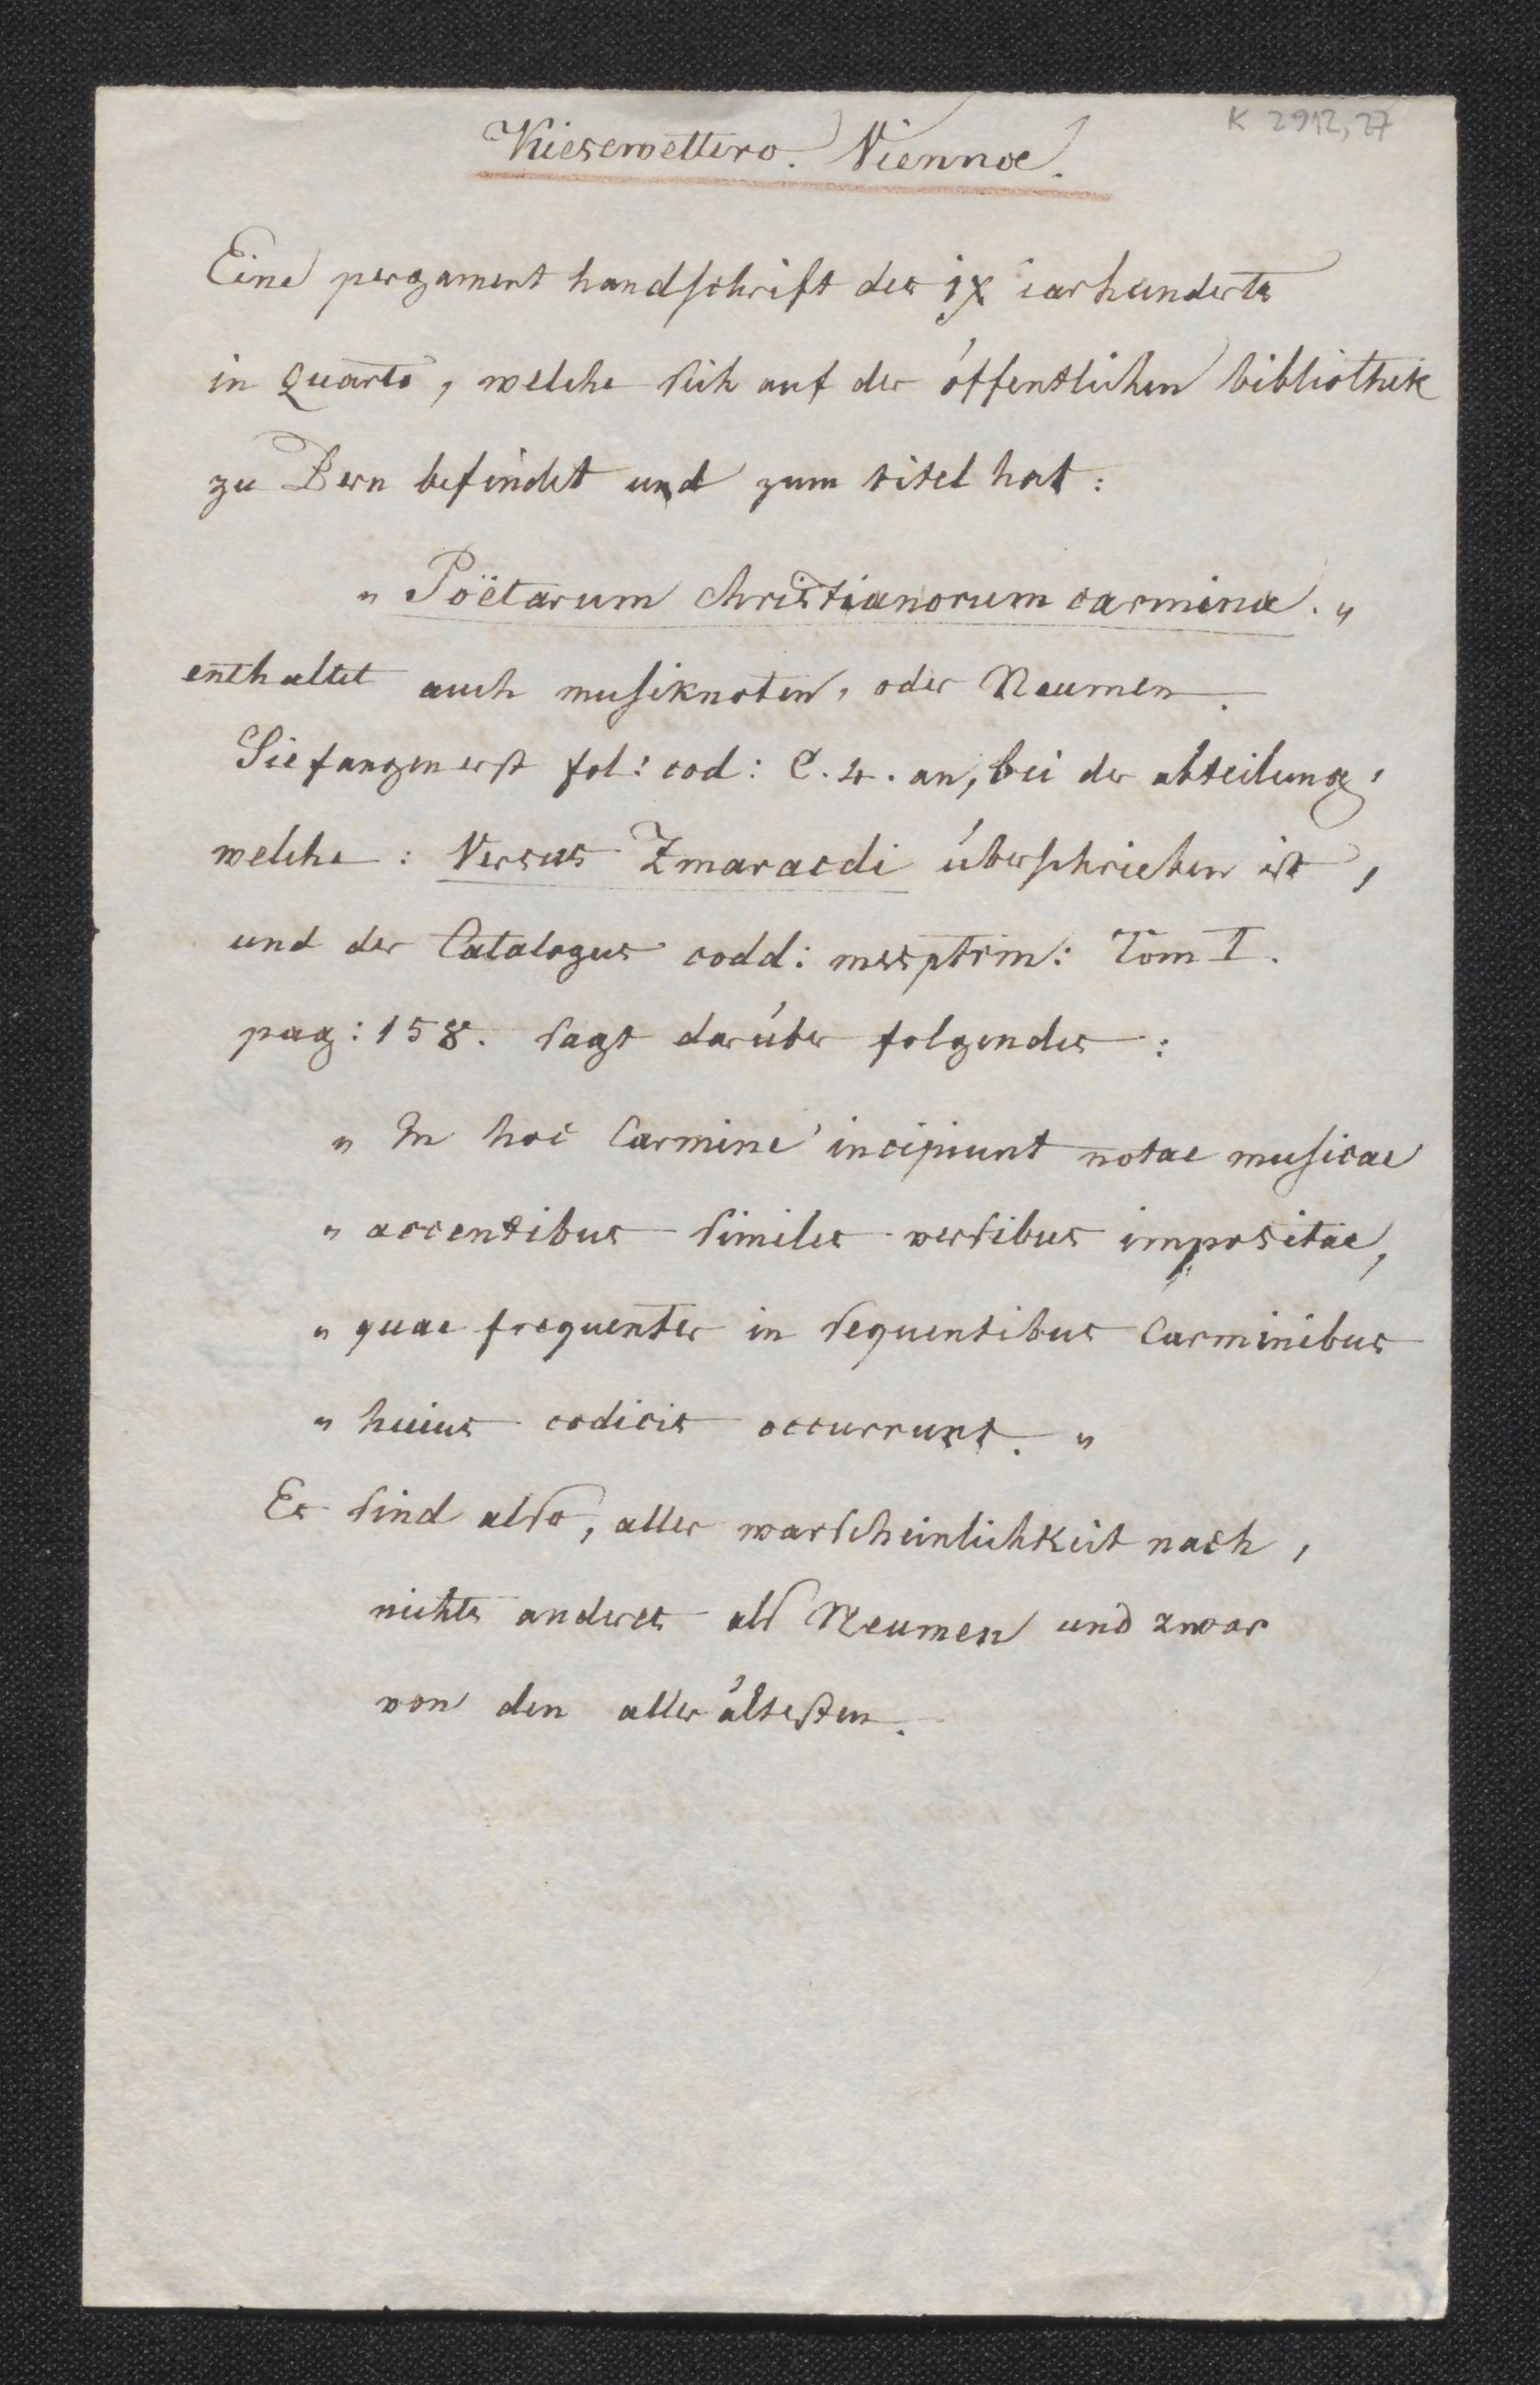 K 2912, 27
Kiesewettero. Viennae.
Eine pergament handschrift des ix iarhunderts
in quarto, welche sich auf der öffentlichen bibliothek
zu Bern befindet und zum titel hat:
„ Poëtarum christianorum carmina. „
enthaltet auch musiknoten, oder Neumen.
Sie fangen erst fol: cod: C. 4. an, bei der abteilung,
welche: Versus Zmaracdi überschrieben ist,
und der Catalogus codd: mssptrm: Tom I.
pag: 158. sagt darüber folgendes:
„ In hoc Carmine incipiunt notae musicae
„ accentibus similes versibus impositae,
„ quae frequenter in sequentibus Carminibus
„ huius codicis occurrunt. „
Es sind also, aller warscheinlichkeit nach,
nichts anderes als Neumen und zwar
von den allerältesten.